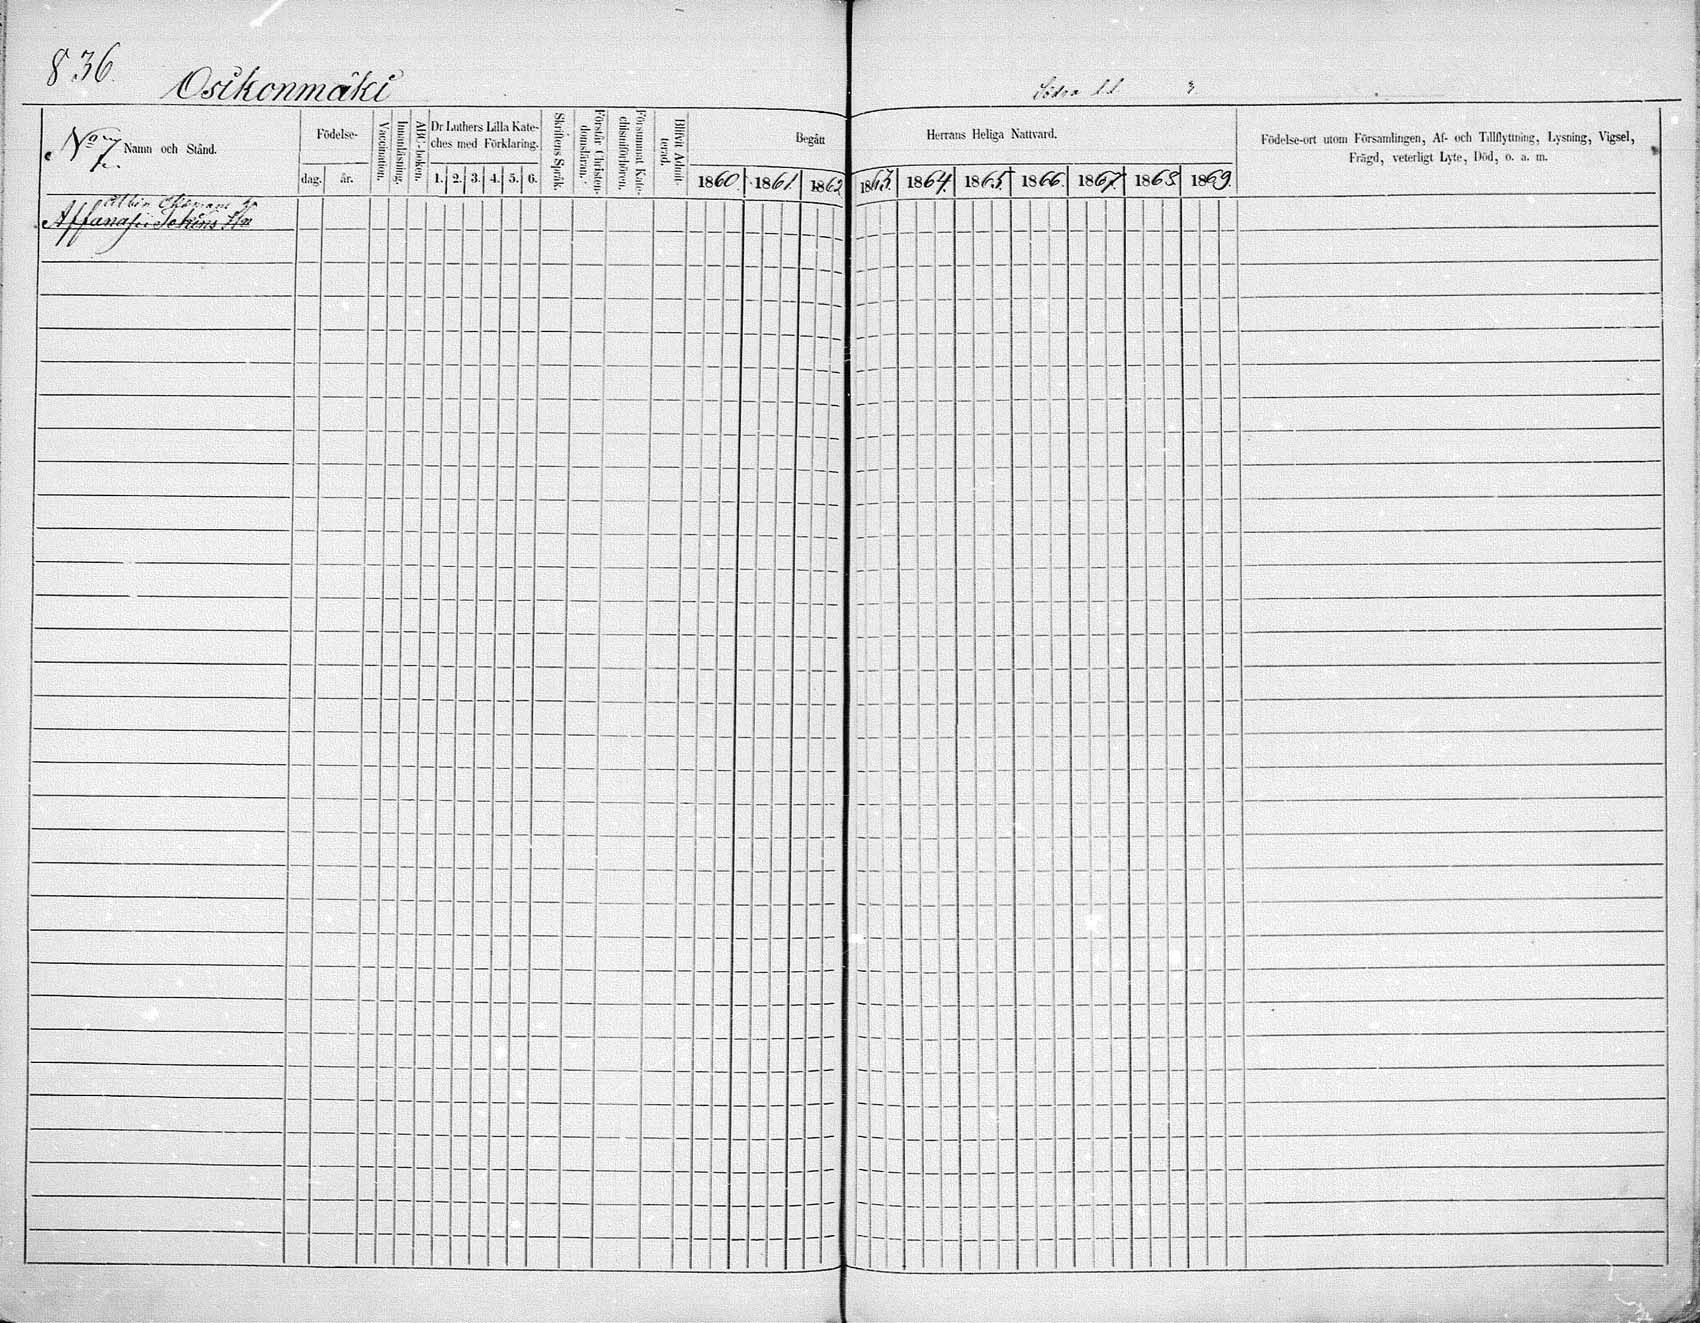 836.
Osikonmäki
Södra
No 7.
Namn och Stånd.
Födelse-
dag.
år.
Vaccination.
Innanläsning.
ABC-boken.
Dr Luthers Lilla Kate-
ches med Förklaring.
1. 2. 3. 4. 5. 6.
Skriftens Språk.
Förstår Christen-
domsläran.
Försummat Kate-
chismiförhören.
Blifvit Admit-
terad.
Begått Herrans Heliga Nattvard.
1860. 1861. 1862. 1863. 1864. 1865. 1866. 1867. 1868. 1869.
Födelse-ort utom Församlingen, Af- och Tillflyttning, Lysning, Vigsel,
Frägd, veterligt Lyte, Död, o. a. m.
Albin
Affanasii